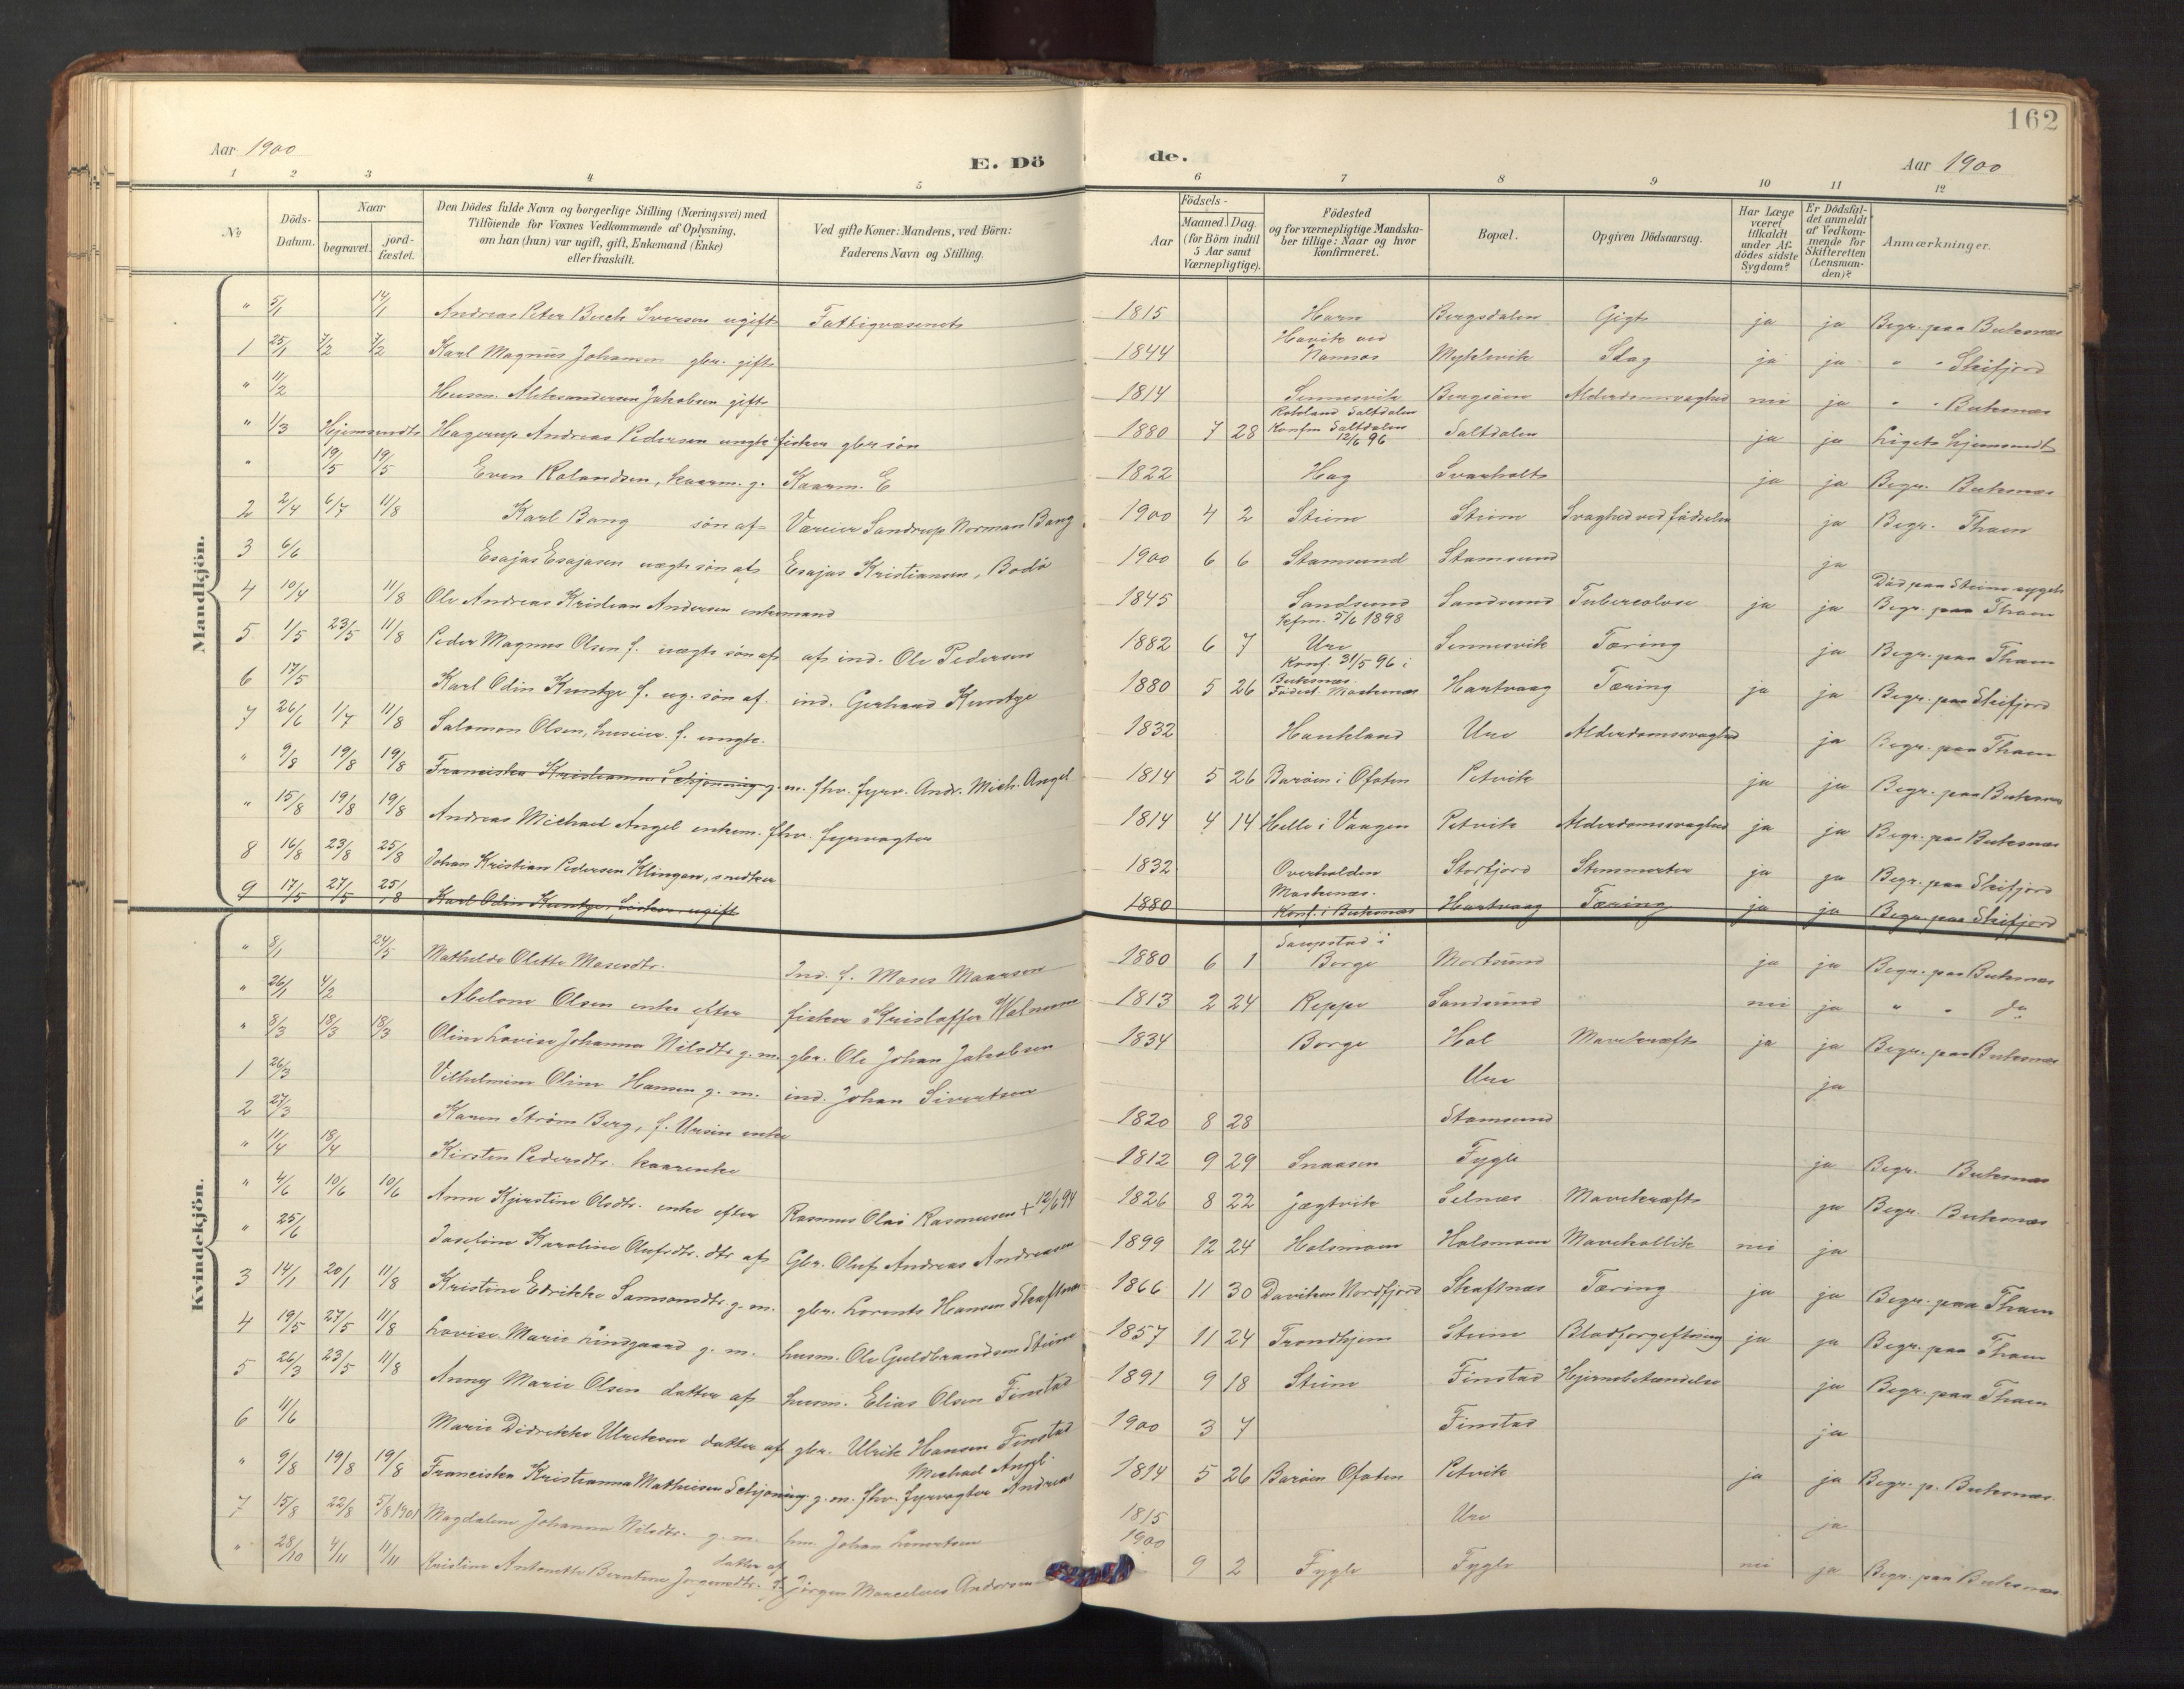 162
Aar 1900
E. Dö
de.
Aar 1900
1 2 3 4 5 6 7 8 9 10 11 12
№
Döds-Datum.
Naar
begravet.
jord-fæstet.
Den Dödes fulde Navn og borgerlige Stilling (Næringsvei) med Tilföiende for Voxnes Vedkommende af Oplysning, om han (hun) var ugift, gift, Enkemand (Enke) eller fraskilt.
Ved gifte Koner: Mandens, ved Börn: Faderens Navn og Stilling.
Födsels-
Aar
Maaned. Dag.
(for Börn indtil 5 Aar samt Værnepligtige).
Födested og for værnepligtige Mandskaber tillige: Naar og hvor Konfirmeret.
Bopæl.
Opgiven Dödsaarsag.
Har Læge været tilkaldt under Afdödes sidste Sygdom?
Er Dödsfaldet anmeldt af Vedkommende for Skifteretten (Lensmanden)?
Anmærkninger.
Mandkjön.
" 5/1 14/1 Andreas Peter Buch Iversen ugift Fattigvæsenets 1815 Bergsdalen Gigt ja ja Begr. paa Buksnæs
1 25/1 7/2 7/2 Karl Magnus Johansen gbr. gift 1844 Havik ved Namsos Myklevik Slag ja ja " " Skifjord
" 11/2 Husm. Aleksandersen Jakobsen gift 1814 Sennesvik Bergsøen Alderdomssvaghed nei ja " " Buksnæs
" 1/3 Hjemsendts Hagerup Andreas Pedersen ungk. fisker gbr søn 1880 7 28 Saltdalen Konfm Saltdalen 12/6 96 Saltdalen ja ja Ligets hjemsendt
" 19/5 19/5 Even Rolandsen, kaarm. g. Kaarm. E 1822 Hag Svarholt ja ja Begr. Buksnæs
2 2/4 6/7 11/8 Karl Bang søn af Væreier Sandrup Norman Bang 1900 4 2 Steine Steine Svaghed ved fødselen ja Begr. Thaen
3 6/6 Esajas Esajasen uægte søn af Esajas Kristiansen, Bodø 1900 6 6 Stamsund Stamsund ja
4 10/4 11/8 Ole Andreas Kristian Andersen enkemand 1845 Sandsund Sandsund Tuberculose ja ja Død paa Steine sygeh. Begr. paa Thaen
5 1/5 23/5 11/8 Peder Magnus Olsen f. uægte søn af af ind. Ole Pedersen 1882 6 7 5/6 1898 Ure Sennesvik Tæring ja Begr. paa Thaen
6 17/5 Karl Odin Kuntze f. ug. søn af. ind. Gerhard Kuntze 1880 5 26 Konf. 31/5 96 i Buksnæs. Fødest. Maskenæs Hartvaag Tæring ja ja Begr. paa Skifjord
7 26/6 1/7 11/8 Salomon Olsen, huseier. f. ungk. 1832 Haukland Ure Alderdomssvaghed ja Begr. paa Thaen
" 9/8 19/8 19/8 Franciska Kristianna Schjønning g. m. fhv. fyrv. Andr. Mich. Angel 1814 5 26 Barøen i Ofoten Petvik ja ja Begr. paa Buksnæs
" 15/8 19/8 19/8 Andreas Michael Angel enkem. fhv. fyrvogter 1814 4 14 Helle i Vaagen Petvik Alderdomssvaghed ja ja Begr. paa Buksnæs
8 16/8 23/8 25/8 Johan Kristian Pedersen Klingen, snedker 1832 Overhalden Storfjord Stensmerter ja ja Begr. paa Skifjord
9 17/5 27/5 25/8 Karl Odin Kuntze, fisker, ugift 1880 Maskenæs. Konf. i Buksnæs Hartvaag Tæring ja ja Begr. paa Skifjord
Kvindekjön.
" 8/1 24/5 Mathilde Olette Mosesdtr. Ind. f. Moses Maarsen 1880 6 1 Saupstad i Borge Mortsund ja ja Begr. paa Buksnæs
" 26/1 4/2 Abelone Olsen enke efter fisker Kristoffer 1813 2 24 Reppe Sandsund nei ja " " Do
" 8/3 18/3 18/3 Oline Lovise Johanna Nilsdtr g. m. gbr. Ole Johan Jakobsen 1834 Borge Hol Mavekræft ja ja Begr. paa Buksnæs
1 26/3 Vilhelmine Oline Hansen g. m. ind. Johan Sivertsen Ure ja
2 27/3 Karen Strøm Berg, f. Ursin enke 1820 8 28 Stamsund
" 11/4 18/4 Kirsten Pedersdtr. kaarenke 1812 9 29 Snaasen Fygle ja Begr. Buksnæs
" 4/6 10/6 10/6 Anne Kjerstine Olsdtr. enke efter Rasmus Olai Rasmussen + 12/6 94 1826 8 22 Jægtvik Selnæs Mavekræft ja Begr. Buksnæs
" 25/6 Josefine Karoline Olufsdtr. dtr af Gbr. Oluf Andreas Andreasen 1899 12 24 Holsmoen Holsmoen Mavekollik nei ja
3 14/1 20/1 11/8 Kristine Edrikke Samsonsdtr. g. m. gbr. Lorents Hansen Skaftnæs 1866 11 30 Daviken Nordfjord Skaftnæs Tæring ja ja Begr. paa Thaen
4 19/5 27/5 11/8 Lovise Marie Lindgaard g. m. husm. Ole Guldbrandsen Steine 1857 11 24 Trondhjem Steine Blodforgiftning ja ja Begr. paa Thaen
5 26/3 23/5 11/8 Anny Marie Olsen datter af husm. Elias Olsen Finstad 1891 9 18 Steine Finstad Hjernebetændelse ja Begr. paa Thaen
6 11/6 Marie Didrikke Ulriksen datter af gbr. Ulrik Hansen Finstad 1900 3 7 Finstad ja
" 9/8 19/8 19/8 Franciska Kristianna Mathisen Schjønning g. m. fhv. fyrvogter Andreas Michael Angel. 1814 5 26 Barøen Ofoten Petvik ja ja Begr. p. Buksnæs.
7 15/8 22/8 5/8 1901 Magdalene Johanna Nilsdtr. g. m. hm. Johan 1815 Ure ja
" 28/10 4/11 11/11 Kristine Antonette Berntine Jørgensdtr. datter af Jørgen Marcelius Andersen 1900 9 2 Fygle Fygle nei ja Begr. paa Buksnæs.